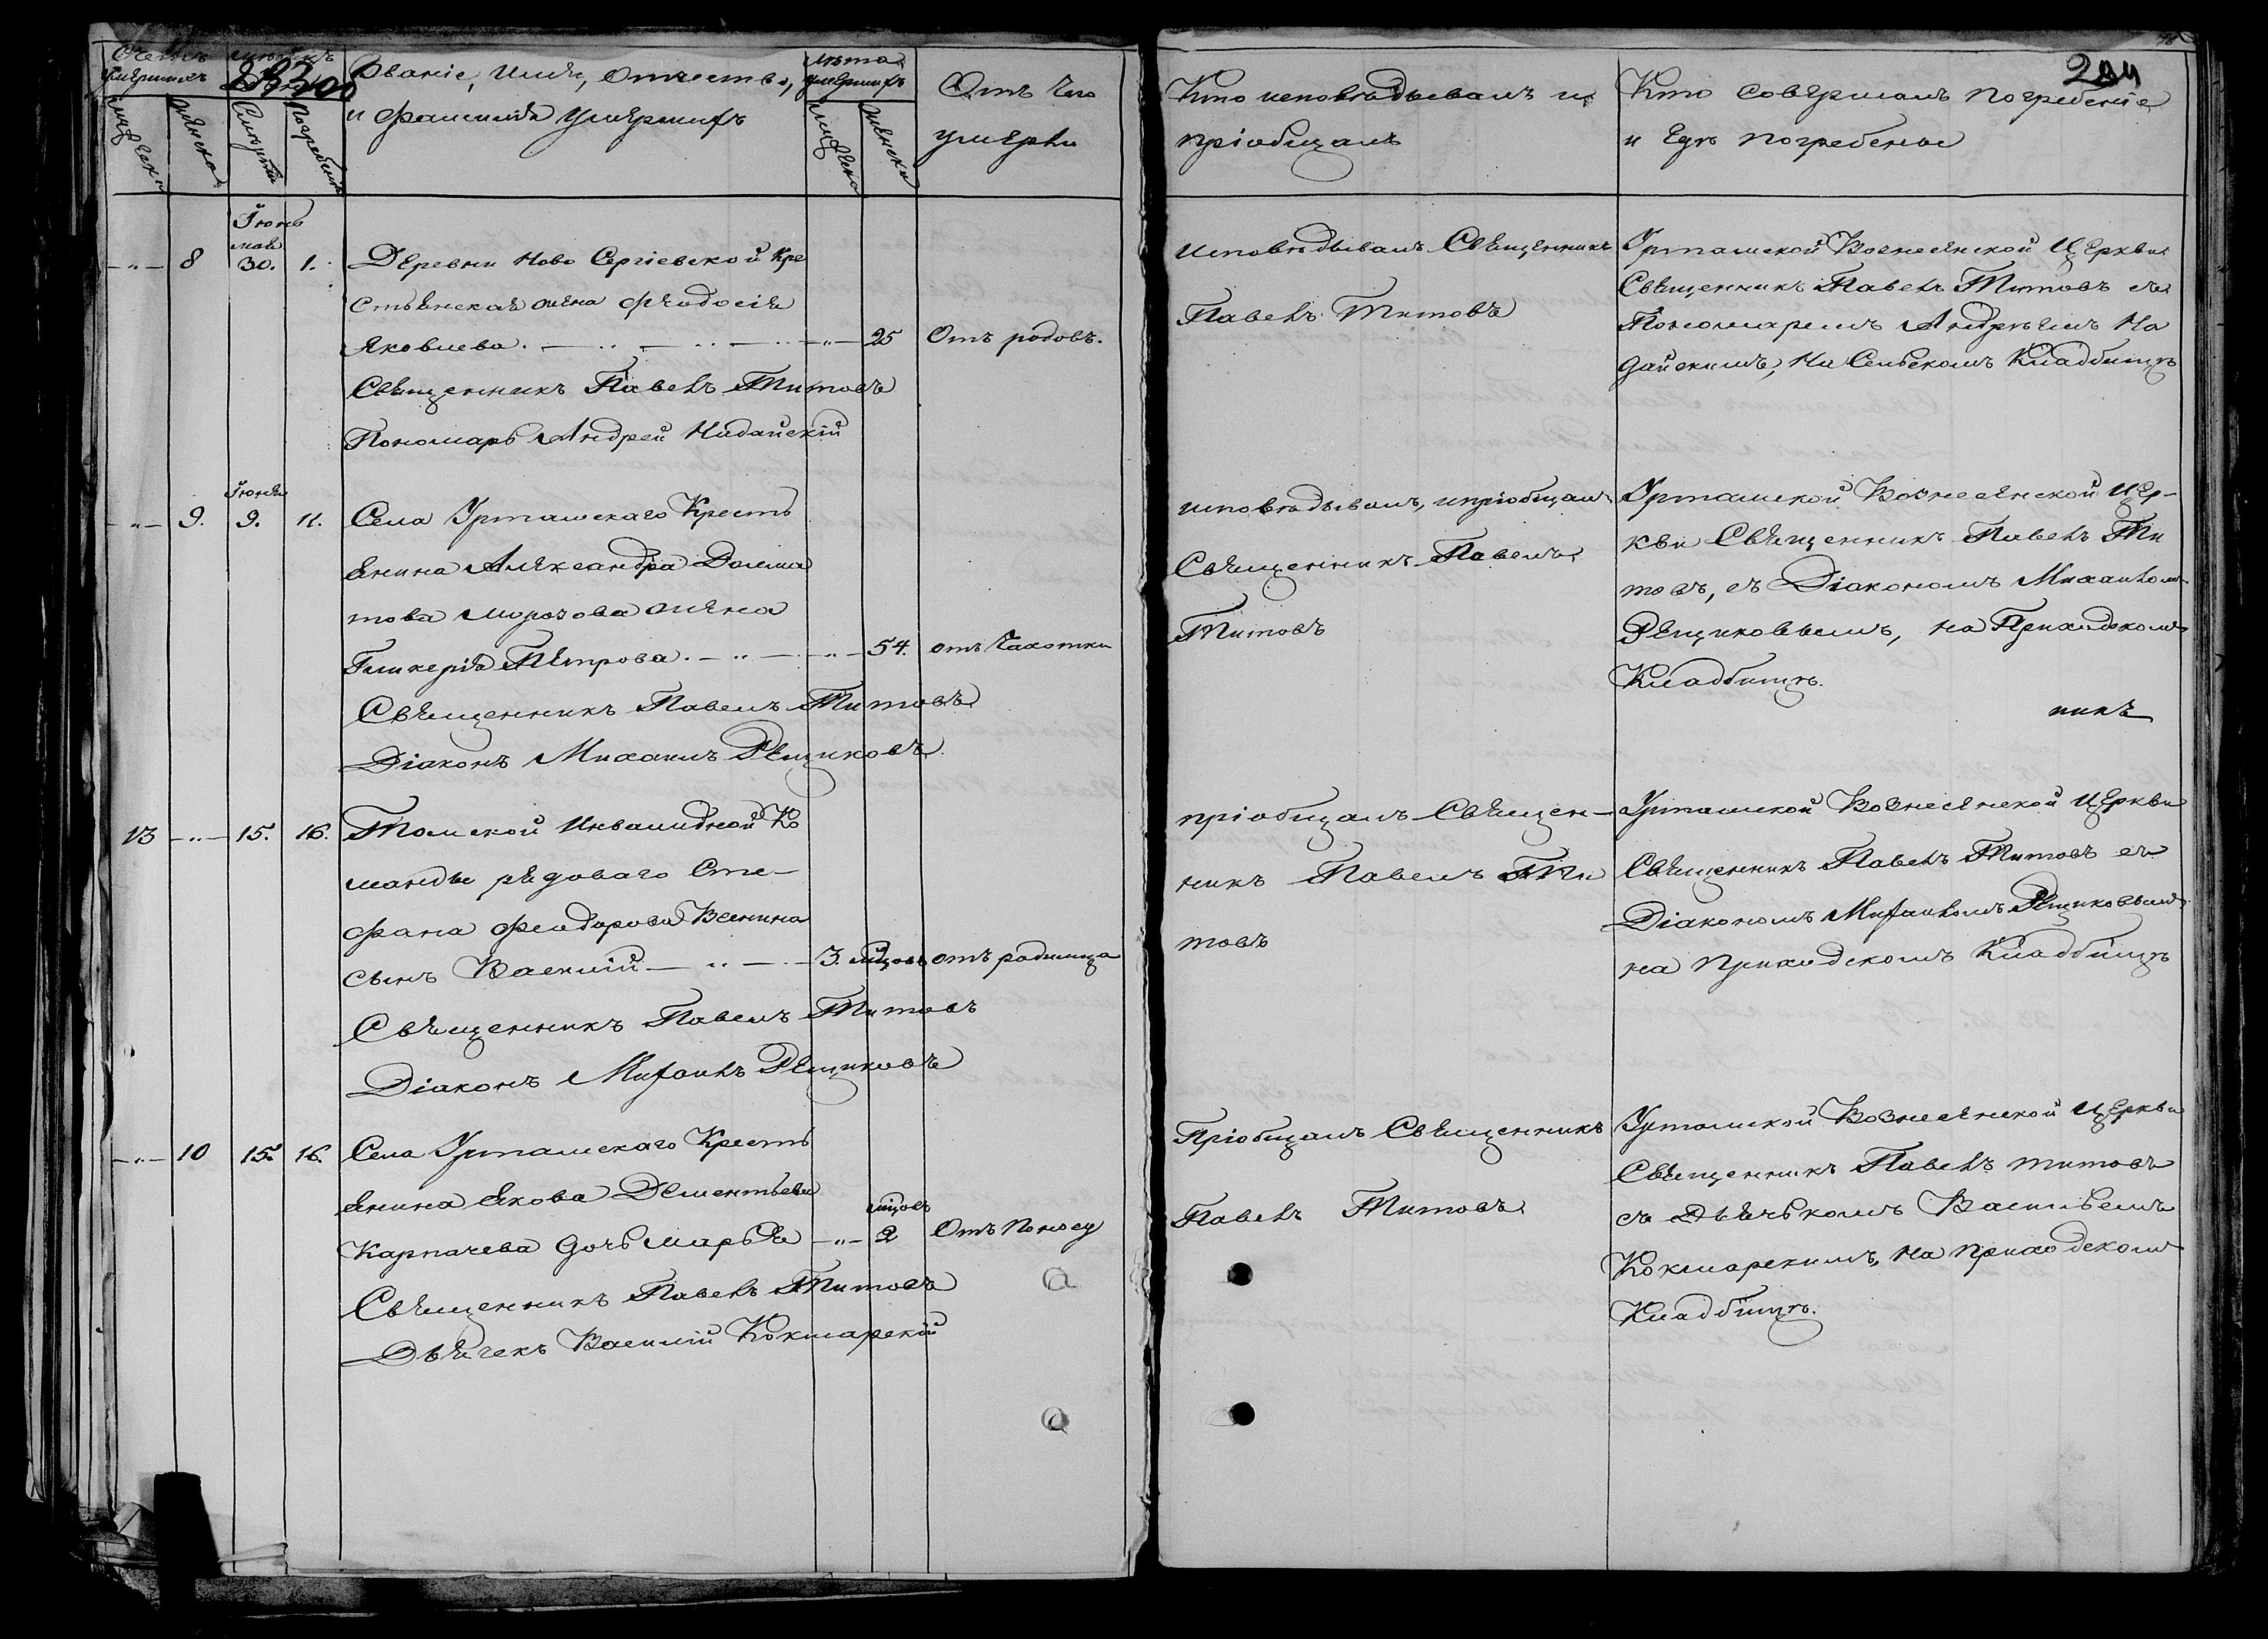 Счетъ умершихъ
Званіе, Имя, Отчество,
и Фамилія Умершихъ
Лѣта умершихъ
Отъ Чего
умерли
Кто исповѣдывалъ и
пріобщалъ
Кто совершалъ погребеніе
и Гдѣ погребены
Мужеска
Женска
Смерти
Погребенія
Мужеска
Женска
Іюнь
мая
8 30. 1. Деревни Ново Сергіевской Кре
стьянская жена Феодосія
Яковлева. 25 Отъ родовъ.
Священникъ Павелъ Титовъ
Пономарь Андрей Надайскій
Исповѣдывалъ Священникъ
Павелъ Титовъ
Уртамской Вознесенской Церкви
Священникъ Павелъ Титовъ съ
Пономаремъ Андреемъ На
дайскимъ, На Сельскомъ Кладбищѣ
Іюня
9. 9. 11. Села Уртамскаго Кресть
янина Александра Долма
това Морозова жена
Гликерія Петрова. 54. отъ Чахотки
Священникъ Павелъ Титовъ
Діаконъ Михаилъ Рещиковъ
исповѣдывалъ, и пріобщалъ
Священникъ Павелъ
Титовъ
Уртамской Вознесенской Цер-
кви Священникъ Павелъ Ти
товъ, съ Діакономъ Михаиломъ
Рещиковымъ, на Приходскомъ
Кладбищѣ.
никъ
13 15. 16. Томской Инвалидной Ко
манды рядоваго Сте-
фана Феодорова
сынъ Василій 3. мѣцовъ отъ родимца
Священникъ Павелъ Титовъ
Діаконъ Михаилъ Рещиковъ
пріобщалъ Священ-
никъ Павелъ Ти
товъ
Уртамской Вознесенской Церкви
Священникъ Павелъ Титовъ съ
Діакономъ Михаиломъ Рещиковымъ
на Приходскомъ Кладбищѣ
10 15. 16. Села Уртамскаго Кресть
янина Якова Дементьева
Карпачева дочь Марья 2 мѣцовъ Отъ Поносу
Священникъ Павелъ Титовъ
Дьячекъ Василій Кокшарскій
Пріобщалъ Священникъ
Павелъ Титовъ
Уртамской Вознесенской Церкви
Священникъ Павелъ Титовъ
съ Дьячькомъ Васильемъ
Кокшарскимъ, на Приходскомъ
Кладбищѣ.